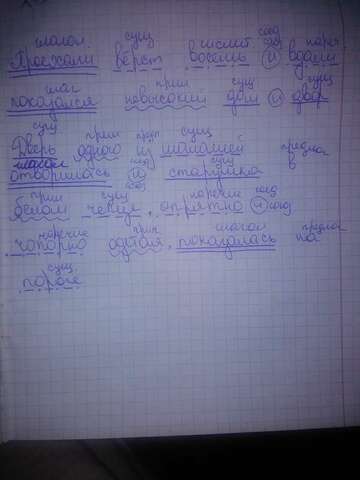 глагол. сущ числит союз нареч
Проехали вёрст восемь и вдали
глаг прил сущ сущ
показался невысокий дом и двор
сущ прил пред сущ
Дверь одного из шалашей предлог
глагол союз сущ в
отворилась и старушка
прил сущ наречие союз
белом чепце, опрятно и
наречие прич глагол предлог
чопорно одетая, показалась на
сущ
пороге